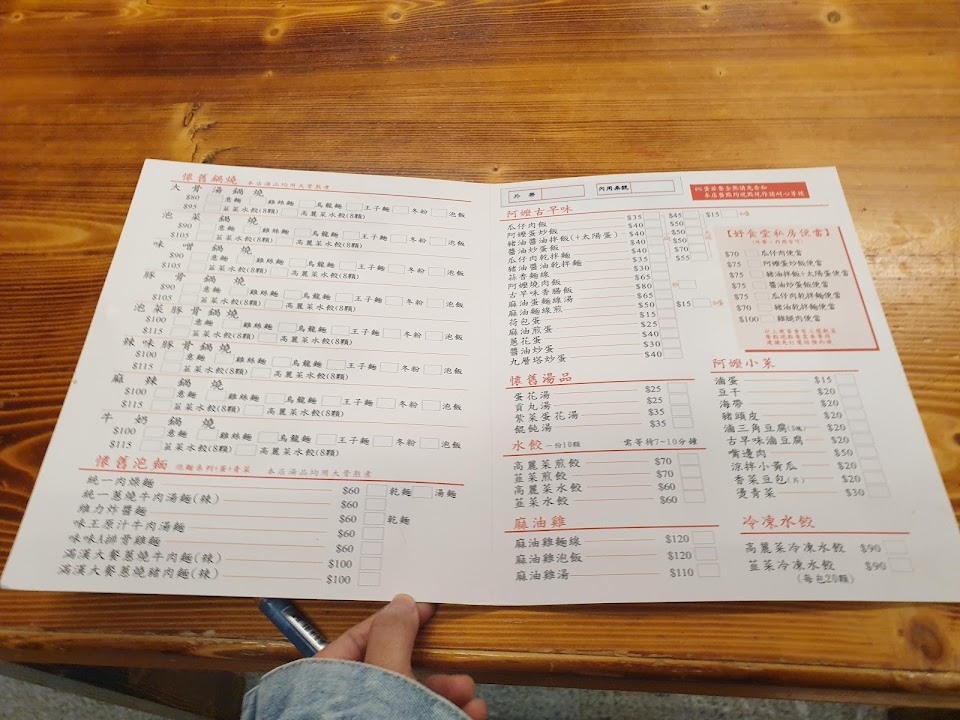 懷舊鍋燒 本店湯品均用大骨熬煮
大骨湯鍋燒
$80 意麵 雞絲麵 烏龍麵 王子麵 冬粉 泡飯
$95 韮菜水餃(8顆) 高麗菜水餃(8顆)
泡菜鍋燒
$90 意麵 雞絲麵 烏龍麵 王子麵 冬粉 泡飯
$105 韮菜水餃(8顆) 高麗菜水餃(8顆)
味噌鍋燒
$90 意麵 雞絲麵 烏龍麵 王子麵 冬粉 泡飯
$105 韮菜水餃(8顆) 高麗菜水餃(8顆)
豚骨鍋燒
$90 意麵 雞絲麵 烏龍麵 王子麵 冬粉 泡飯
$105 韮菜水餃(8顆) 高麗菜水餃(8顆)
泡菜豚骨鍋燒
$100 意麵 雞絲麵 烏龍麵 王子麵 冬粉 泡飯
$115 韮菜水餃(8顆) 高麗菜水餃(8顆)
辣味豚骨鍋燒
$100 意麵 雞絲麵 烏龍麵 王子麵 冬粉 泡飯
$115 韮菜水餃(8顆) 高麗菜水餃(8顆)
麻辣鍋燒
$100 意麵 雞絲麵 烏龍麵 王子麵 冬粉 泡飯
$115 韮菜水餃(8顆) 高麗菜水餃(8顆)
牛奶鍋燒
$100 意麵 雞絲麵 烏龍麵 王子麵 冬粉 泡飯
$115 韮菜水餃(8顆) 高麗菜水餃(8顆)
懷舊泡麵 泡麵系列+蛋+青菜 本店湯品均用大骨熬煮
統一肉燥麵 $60 乾麵 湯麵
統一蔥燒牛肉湯麵(辣) $60
維力炸醬麵 $60 乾麵
味王原汁牛肉湯麵 $60
味味A排骨雞麵 $60
滿漢大餐蔥燒牛肉麵(辣) $100
滿漢大餐蔥燒豬肉麵(辣) $100
外帶 內用桌號
阿嬤古早味
瓜仔肉飯 $35 $45 $15
阿嬤蛋炒飯 $40 $50
豬油醬油拌飯(+太陽蛋) $40 $50
醬油炒蛋飯 $40 $50
瓜仔肉乾拌麵 $40 $70
豬油醬油乾拌麵 $35 $55
蒜香麵線 $30
阿嬤燒肉飯 $65
古早味香腸飯 $80
麻油蛋麵線湯 $65
麻油麵線煎 $50 $15
荷包蛋 $15
麻油煎蛋 $25
蔥花蛋 $40
醬油炒蛋 $30
九層塔炒蛋 $40
懷舊湯品
蛋花湯 $25
貢丸湯 $25
紫菜蛋花湯 $35
餛飩湯 $35
水餃 一份10顆 需等待7-10分鐘
高麗菜煎餃 $70
韮菜煎餃 $70
高麗菜水餃 $60
韮菜水餃 $60
麻油雞
麻油雞麵線 $120
麻油雞泡飯 $120
麻油雞湯 $110
【好食堂私房便當】
$70 瓜仔肉便當
$75 阿嬤蛋炒飯便當
$75 豬油拌飯+太陽蛋便當
$75 醬油蛋炒飯便當
$75 瓜仔肉乾拌麵便當
$70 豬油乾拌麵便當
$100 雞腿肉便當
阿嬤小菜
滷蛋 $15
豆干 $20
海帶 $20
豬頭皮 $20
滷三角豆腐 $20
古早味滷豆腐 $20
嘴邊肉 $50
涼拌小黃瓜 $20
香菜豆包(片) $20
燙青菜 $30
冷凍水餃
高麗菜冷凍水餃 $90
韮菜冷凍水餃 $90
(每包20顆)